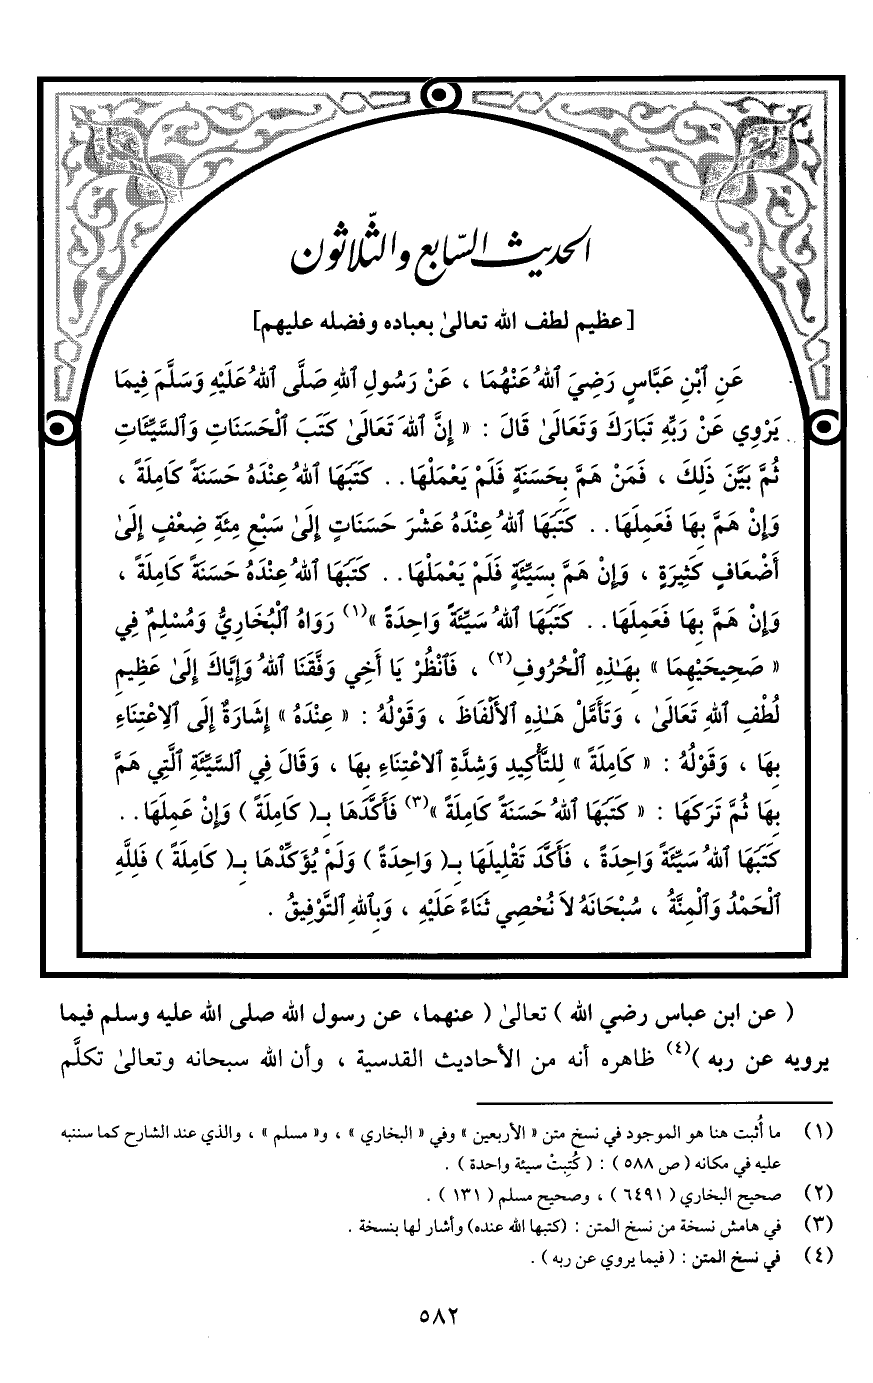 الحديث السّابع والثّلاثون
[عظيم لطف الله تعالىٰ بعباده وفضله عليهم]
عَنِ ٱبْنِ عَبَّاسٍ رَضِيَ ٱللهُ عَنْهُمَا ، عَنْ رَسُولِ ٱللهِ صَلَّى ٱللهُ عَلَيْهِ وَسَلَّمَ فِيمَا
يَرْوِي عَنْ رَبِّهِ تَبَارَكَ وَتَعَالَىٰ قَالَ : « إِنَّ ٱللهَ تَعَالَىٰ كَتَبَ ٱلْحَسَنَاتِ وَٱلسَّيِّئَاتِ
ثُمَّ بَيَّنَ ذَلِكَ ، فَمَنْ هَمَّ بِحَسَنَةٍ فَلَمْ يَعْمَلْهَا . . كَتَبَهَا ٱللهُ عِنْدَهُ حَسَنَةً كَامِلَةً ،
وَإِنْ هَمَّ بِهَا فَعَمِلَهَا . . كَتَبَهَا ٱللهُ عِنْدَهُ عَشْرَ حَسَنَاتٍ إِلَىٰ سَبْعِ مِئَةِ ضِعْفٍ إِلَىٰ
أَضْعَافٍ كَثِيرَةٍ ، وَإِنْ هَمَّ بِسَيِّئَةٍ فَلَمْ يَعْمَلْهَا . . كَتَبَهَا ٱللهُ عِنْدَهُ حَسَنَةً كَامِلَةً ،
وَإِنْ هَمَّ بِهَا فَعَمِلَهَا . . كَتَبَهَا ٱللهُ سَيِّئَةً وَاحِدَةً »(١) رَوَاهُ ٱلْبُخَارِيُّ وَمُسْلِمٌ فِي
« صَحِيحَيْهِمَا » بِهَـٰذِهِ ٱلْحُرُوفِ(٢) ، فَٱنْظُرْ يَا أَخِي وَفَّقَنَا ٱللهُ وَإِيَّاكَ إِلَىٰ عَظِيمِ
لُطْفِ ٱللهِ تَعَالَىٰ ، وَتَأَمَّلْ هَـٰذِهِ ٱلأَلْفَاظَ ، وَقَوْلُهُ : « عِنْدَهُ » إِشَارَةٌ إِلَى ٱلِاعْتِنَاءِ
بِهَا ، وَقَوْلُهُ : « كَامِلَةً » لِلتَّأْكِيدِ وَشِدَّةِ الاعْتِنَاءِ بِهَا ، وَقَالَ فِي ٱلسَّيِّئَةِ ٱلَّتِي هَمَّ
بِهَا ثُمَّ تَرَكَهَا : « كَتَبَهَا ٱللهُ حَسَنَةً كَامِلَةً »(٣) فَأَكَّدَهَا بِـ( كَامِلَةً ) وَإِنْ عَمِلَهَا . .
كَتَبَهَا ٱللهُ سَيِّئَةً وَاحِدَةً ، فَأَكَّدَ تَقْلِيلَهَا بِـ( وَاحِدَةً ) وَلَمْ يُؤَكِّدْهَا بِـ( كَامِلَةً ) فَلِلَّهِ
ٱلْحَمْدُ وَٱلْمِنَّةُ ، سُبْحَانَهُ لاَ نُحْصِي ثَنَاءً عَلَيْهِ ، وَبِٱللهِ التَّوْفِيقُ .
( عن ابن عباس رضي الله ) تعالىٰ ( عنهما، عن رسول الله صلى الله عليه وسلم فيما
يرويه عن ربه )(٤) ظاهره أنه من الأحاديث القدسية ، وأن الله سبحانه وتعالىٰ تكلَّم
(١) ما أُثبت هنا هو الموجود في نسخ متن « الأربعين » وفي « البخاري » ، و« مسلم » ، والذي عند الشارح كما سننبه
عليه في مكانه ( ص ٥٨٨ ) : ( كُتِبتْ سيئة واحدة ) .
(٢) صحيح البخاري ( ٦٤٩١ ) ، وصحيح مسلم ( ١٣١ ) .
(٣) في هامش نسخة من نسخ المتن : (كتبها الله عنده) وأشار لها بنسخة .
(٤) في نسخ المتن : ( فيما يروي عن ربه ) .
٥٨٢